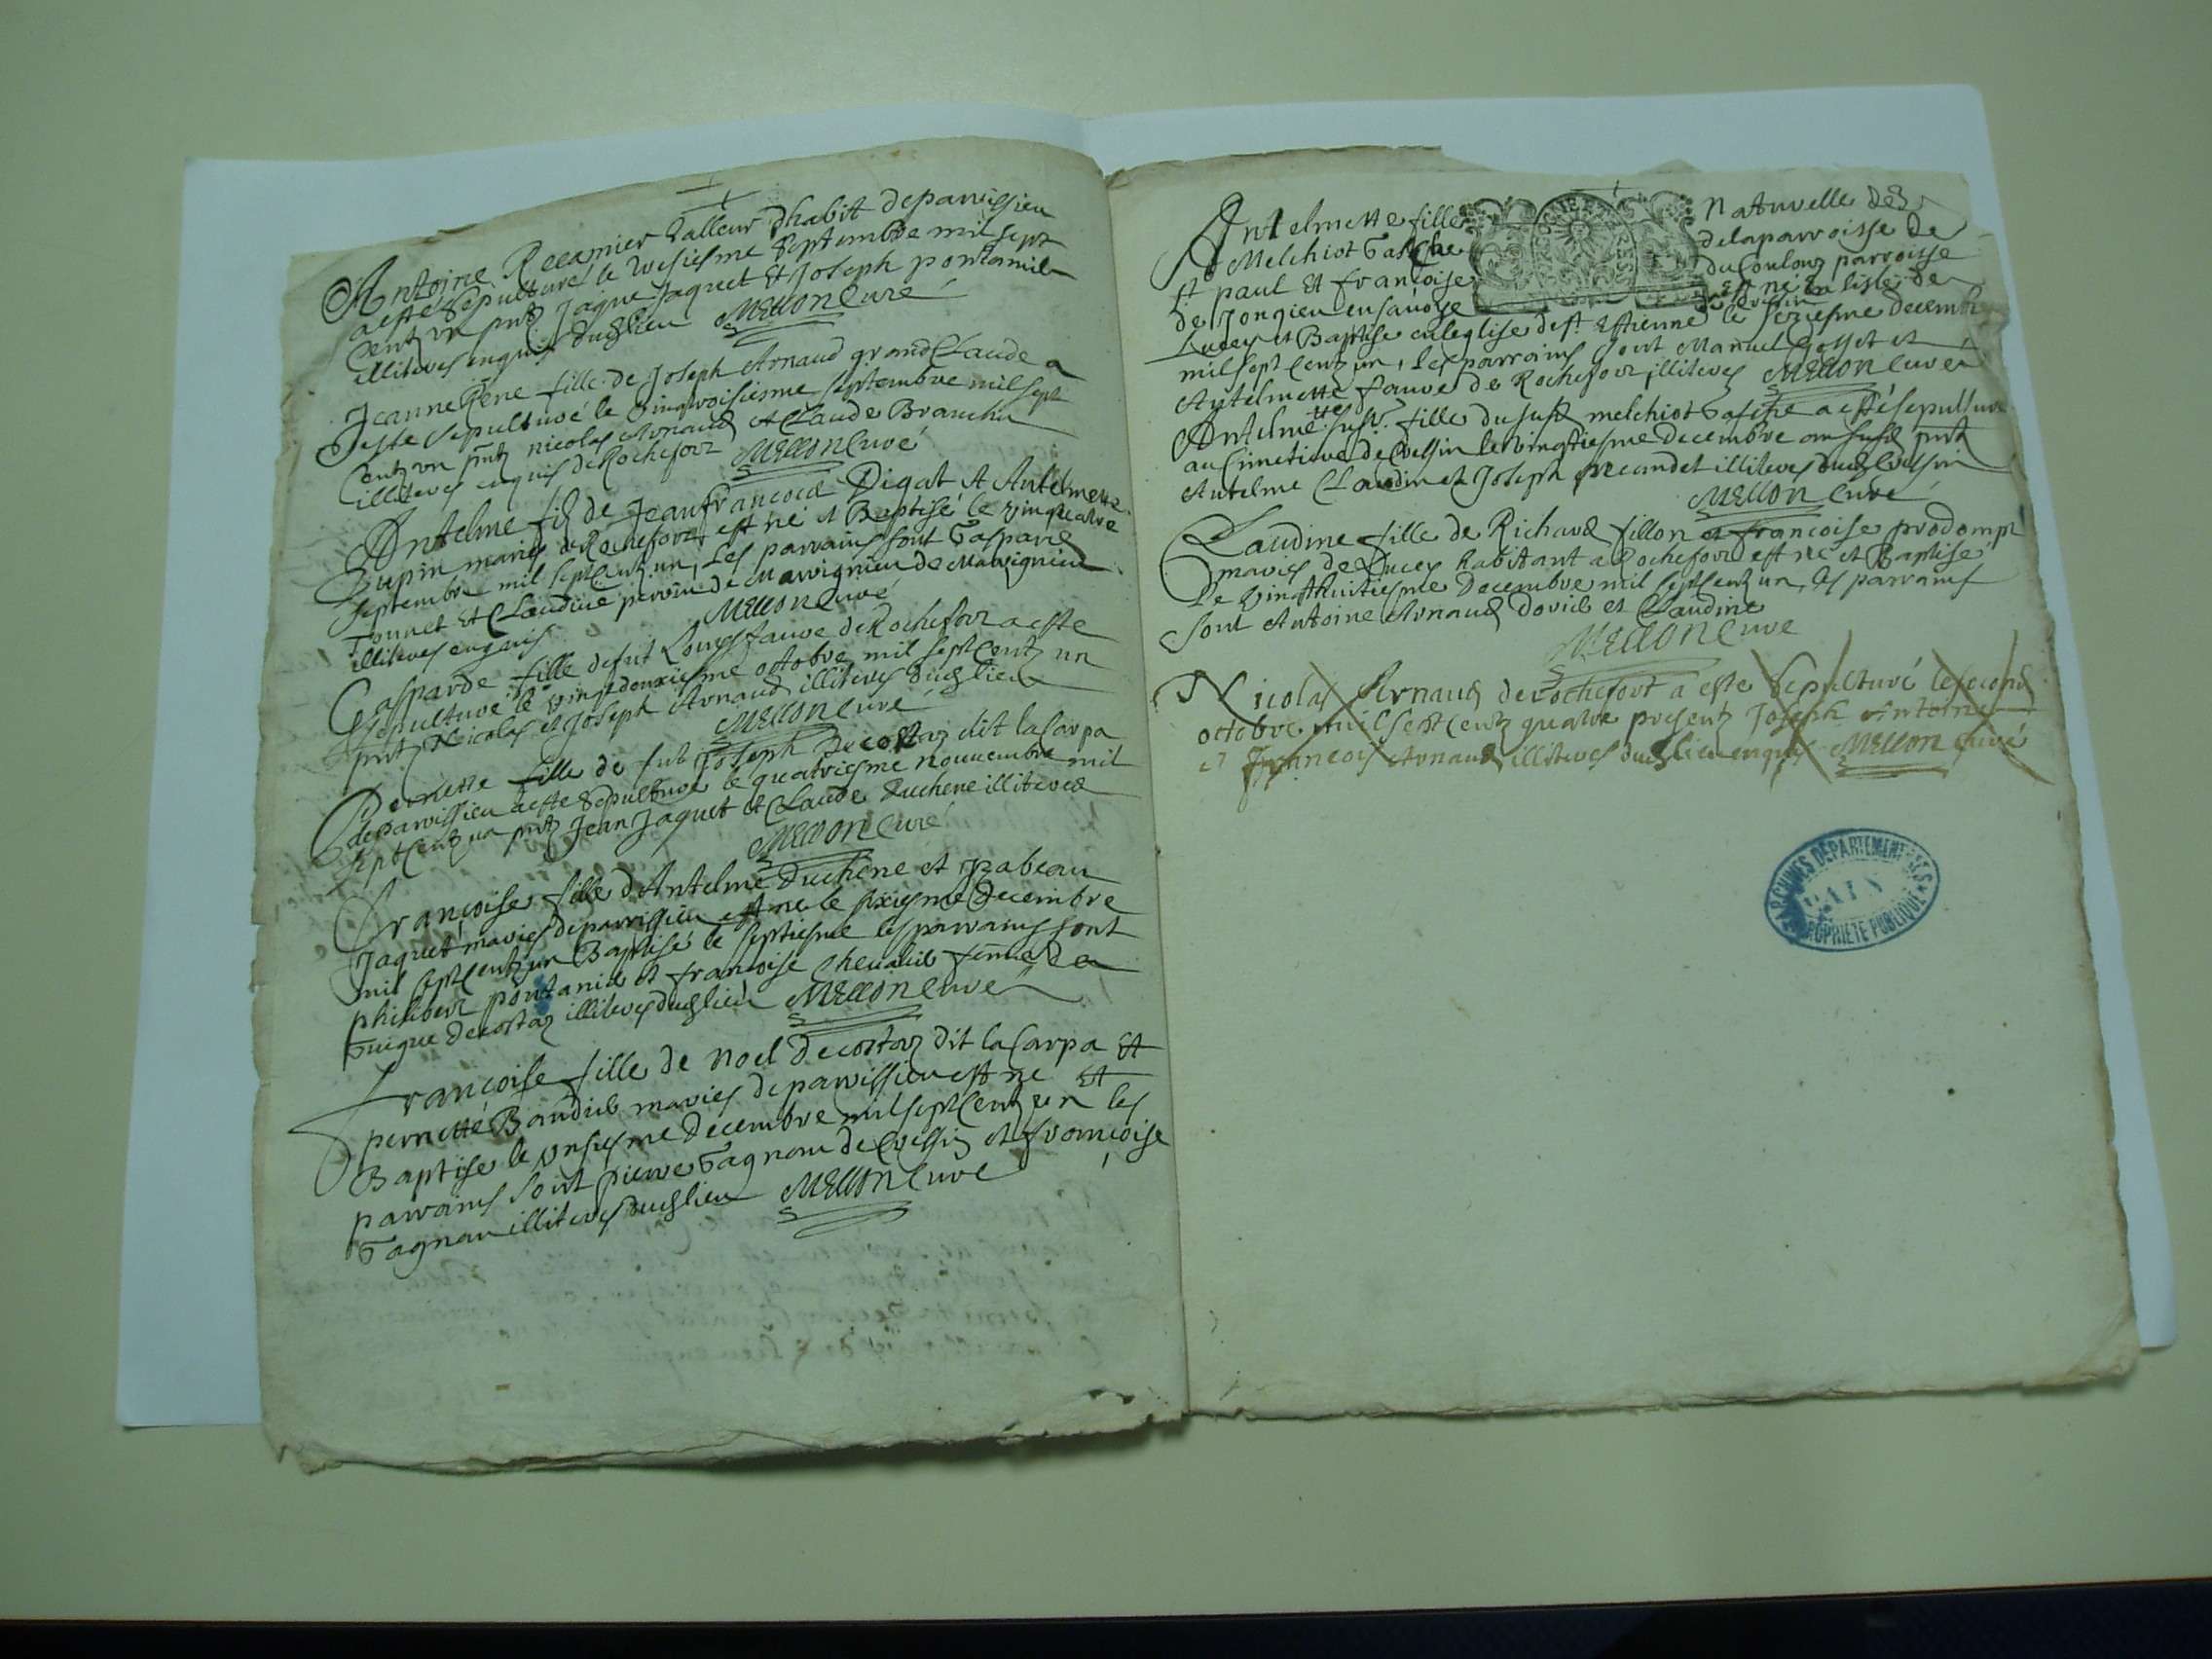 Antoine Recamier talleur dhabit deparvissieu
a esté sepulturé le tresiesme septembre mil sept
Centz un pntz Jaque Jaquet Et Joseph pontamier
illiteres enquis dudlieu Mellon Curé
Jeanne fille de Joseph Arnaud grand Claude a
este sepulturé le vingtroisiesme septembre mil sept
Centz un pntz nicolas Arnaud et Claude Branchu
illiteres enquis de Rochefort Mellon Curé
Antelme filz de Jeanfrancois Digat et Antelmette
Bupin mariés de Rochefort est né et Baptisé le vinquatre
septembre mil sept Centz un, Les parrains sont Gaspard
Tonnet et Claudine perrin de Marignieu de Marignieu
illiteres enquis Mellon Curé
Gasparde fille defut Louys fauve de Rochefort a esté
sepulture le vingtdeuxiesme octobre mil sept Centz un
pntz Nicolas et Joseph Arnaud illiteres dudlieu
Mellon Curé
Pernette fille de fut Joseph Decostaz dit la Carpa
deparvissieu a esté sepulturé le quatriesme nouuembre mil
sept Centz un pntz Jean Jaquet et Claude Duchene illiteres
Mellon Curé
françoise fille d'Antelme Duchene et yzabeau
Jaquet mariés deparvissieu est née le sixiesme Decembre
mil sept Centz un Baptisé le septiesme les parrains sont
philibert pontamier et françoise Chevalier femme de
Guigue Decostaz illiteres dudlieu Mellon Curé
françoise fille de noel Decostaz dit la Carpa et
pernette Baudier mariés de parvissieu est né et
Baptise le onsiesme Decembre mil sept Centz un les
parrains sont pierre Gagnau de Cressin et françoise
Gagnau illiteres dudlieu Mellon Curé
Antelmette fille naturelle de
Melchiot Gasche delaparroisse de
st paul et françoise du Coulouz parroisse
de Jongieu en savoye est né en liste de
Lucey et Baptise en leglise de st Estienne de Cressin le sesiesme decembre
mil sept Centz un, Les parrains sont Manuel Gosset et
Antelmette fauve de Rochefort illiteres Mellon Curé
Antelmette susd. fille dususd melchiot Gasche a esté sepulture
au Cimetiere de Cressin le vingtiesme Decembre an susd pntz
Antelme Claudin et Joseph Mecandet illiteres dud Cressin
Mellon Curé
Claudine fille de Richard fillon et françoise prodompt
mariés de Lucey habitant a Rochefort est né et Baptise
Le vingthuitiesme Decembre mil sept centz un, les parrains
sont Antoine Arnaud dovier et Claudine
Mellon Curé
Nicolas Arnaud de rochefort a esté sepulturé le second
octobre mil sept centz quatre presentz Joseph Antoine
et francois Arnaud illiteres dudlieu enquis Mellon Curé
ARCHIVES DEPARTEMENTALES
DE L'AIN
PROPRIETE PUBLIQUE